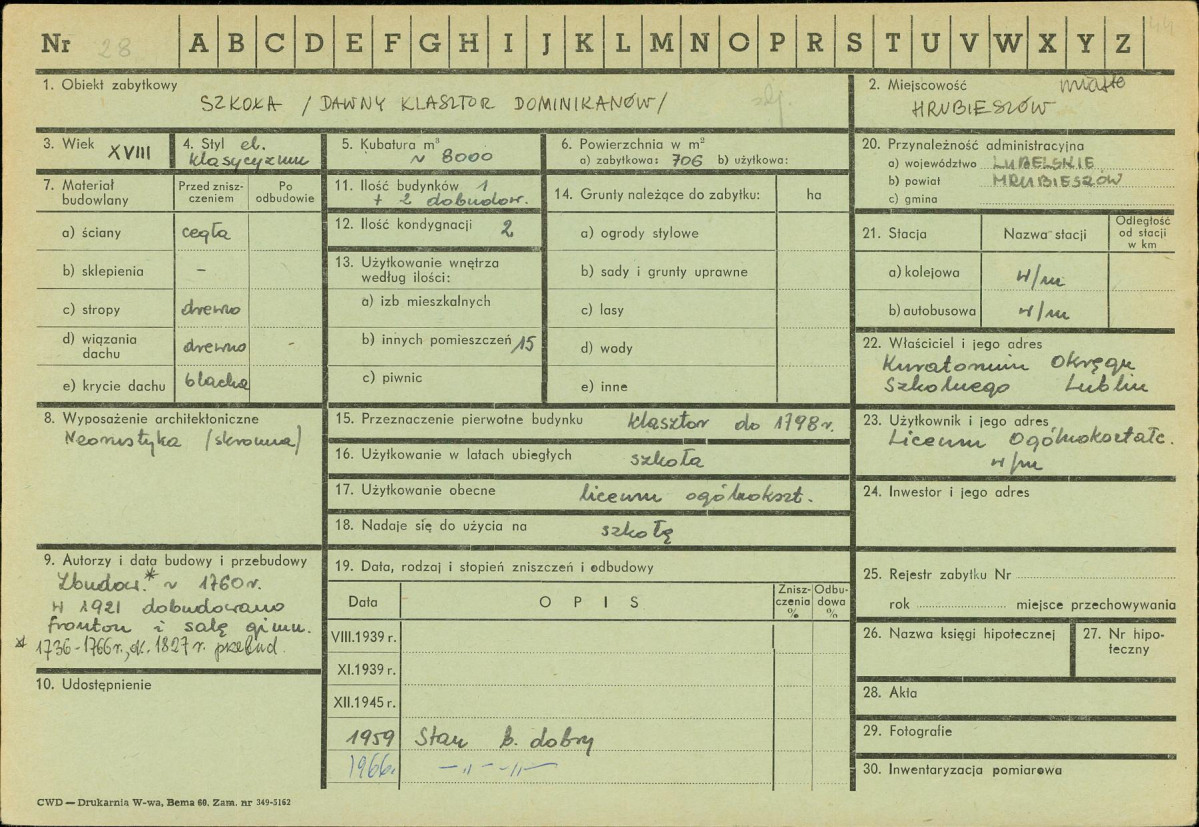 Nr 28 A B C D E F G H I J K L M N O P R S T U V W X Y Z
1. Obiekt zabytkowy
SZKOŁA / DAWNY KLASZTOR DOMINIKANÓW /
2. Miejscowość miasto
HRUBIESZÓW
3. Wiek XVIII
4. Styl el.
klasycyzmu
5. Kubatura m³
~ 8000
6. Powierzchnia w m²
a) zabytkowa: 706 b) użytkowa:
20. Przynależność administracyjna
a) województwo LUBELSKIE
b) powiat HRUBIESZÓW
c) gmina
7. Materiał budowlany
Przed znisz-
czeniem
Po
odbudowie
a) ściany cegła
b) sklepienia –
c) stropy drewno
d) wiązania
dachu drewno -
e) krycie dachu blacha
11. Ilość budynków 1
+ 2 dobudow.
12. Ilość kondygnacji 2
13. Użytkowanie wnętrza
według ilości:
a) izb mieszkalnych
b) innych pomieszczeń 15
c) piwnic
14. Grunty należące do zabytku: ha
a) ogrody stylowe
b) sady i grunty uprawne
c) lasy
d) wody
e) inne
21. Stacja Nazwa stacji
Odległość
od stacji
w km
a) kolejowa w/m
b) autobusowa w/m
22. Właściciel i jego adres
Kuratorium Okręgu
Szkolnego Lublin
8. Wyposażenie architektoniczne
(skromna)
15. Przeznaczenie pierwotne budynku klasztor do 1798 r.
16. Użytkowanie w latach ubiegłych szkoła
17. Użytkowanie obecne liceum ogólnokszt.
18. Nadaje się do użycia na szkołę
23. Użytkownik i jego adres
Liceum Ogólnokształc.
w/m
24. Inwestor i jego adres
9. Autorzy i data budowy i przebudowy
Zbudow.* w 1760 r.
w 1921 dobudowano
fronton i salę gimn.
* 1736-1766 r., ok. 1827 r. przebud.
10. Udostępnienie
19. Data, rodzaj i stopień zniszczeń i odbudowy
Data OPIS
Znisz-
czenia
%
Odbu-
dowa
%
VIII.1939 r.
XI.1939 r.
XII.1945 r.
1959 Stan b. dobry
1966 r. —„— —„—
25. Rejestr zabytku Nr
rok miejsce przechowywania
26. Nazwa księgi hipotecznej
27. Nr hipo-
teczny
28. Akta
29. Fotografie
30. Inwentaryzacja pomiarowa
CWD — Drukarnia W-wa, Bema 60. Zam. nr 349-5162